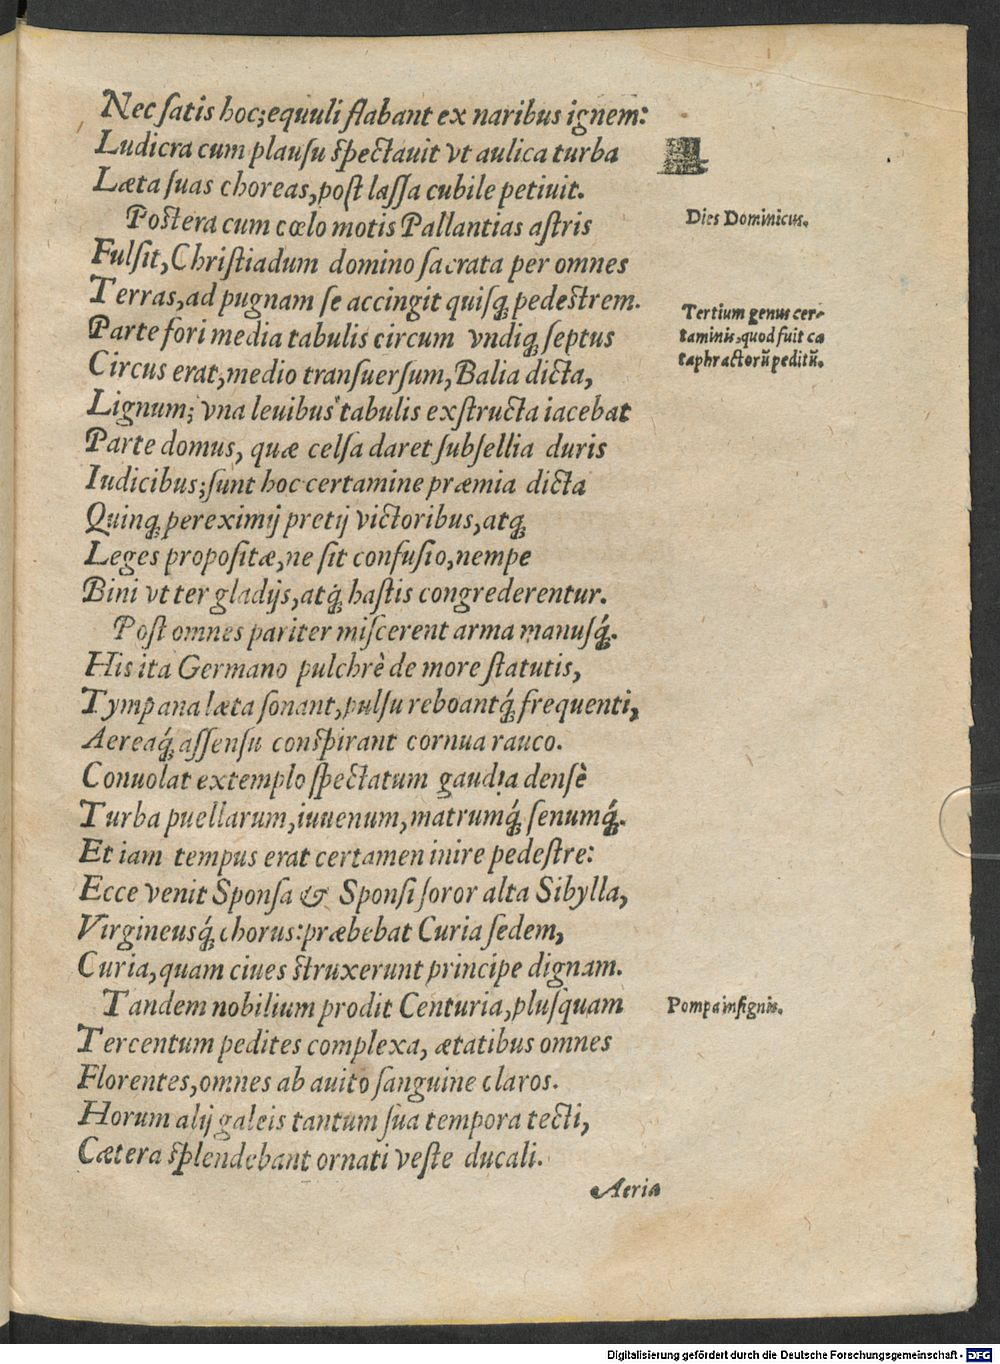 Nec ſatis hoc; equuli flabant ex naribus ignem:
Ludicra cum plauſu ſpectauit vt aulica turba
Læta ſuas choreas, poſt laſſa cubile petiuit.
Poſtera cum cœlo motis Pallantias aſtris
Dies Dominicus.
Fulſit, Chriſtiadum domino ſacrata per omnes
Terras, ad pugnam ſe accingit quiſq́ pedeſtrem.
Tertium genus cer-
taminis, quod fuit ca
taphractorũ peditũ.
Parte fori media tabulis circum vndiq́ ſeptus
Circus erat, medio tranſuerſum, Balia dicta,
Lignum; vna leuibus tabulis exſtructa iacebat
Parte domus, quæ celſa daret ſubſellia duris
Iudicibus; ſunt hoc certamine præmia dicta
Quinq́ pereximij pretij victoribus, atq́
Leges propoſitæ, ne ſit confuſio, nempe
Bini vt ter gladijs, atq́ haſtis congrederentur.
Poſt omnes pariter miſcerent arma manuſq́.
His ita Germano pulchrè de more ſtatutis,
Tympana læta ſonant, pulſu reboantq́ frequenti,
Aereaq́ aſſenſu conſpirant cornua rauco.
Conuolat extemplo ſpectatum gaudia denſè
Turba puellarum, iuuenum, matrumq́ ſenumq́.
Et iam tempus erat certamen inire pedeſtre:
Ecce venit Sponſa & Sponſi ſoror alta Sibylla,
Virgineusq́ chorus: præbebat Curia ſedem,
Curia, quam ciues ſtruxerunt principe dignam.
Tandem nobilium prodit Centuria, pluſquam
Pompa inſignis.
Tercentum pedites complexa, ætatibus omnes
Florentes, omnes ab auito ſanguine claros.
Horum alij galeis tantum ſua tempora tecti,
Cætera ſplendebant ornati veſte ducali.
Aeria
Digitalisierung gefördert durch die Deutsche Forschungsgemeinschaft - DFG